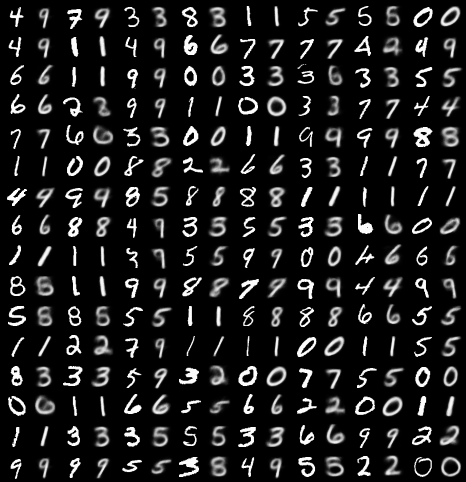 4 9 7 9 3 3 8 3 1 1 5 5 5 5 0 0
4 9 1 1 4 9 6 6 7 7 7 7 4 2 9 9
6 6 1 1 9 9 0 0 3 3 3 6 3 3 5 5
6 6 2 2 9 9 1 1 0 0 3 3 7 7 4 4
7 7 6 6 3 3 0 0 1 1 9 9 9 9 8 8
1 1 0 0 8 8 2 2 6 6 3 3 1 1 7 7
4 9 9 9 8 5 8 8 8 8 1 1 1 1 1 1
6 6 8 8 4 9 3 3 5 5 3 3 6 6 0 0
1 1 1 1 3 9 5 5 9 9 0 0 4 6 6 6
8 5 1 1 9 9 8 8 7 9 9 9 4 4 9 9
5 5 8 5 5 5 1 1 8 8 8 8 6 6 5 5
1 1 2 2 7 9 1 1 1 1 0 0 1 1 5 5
8 3 3 3 5 9 3 2 0 0 7 7 5 5 0 0
0 6 1 1 6 6 5 5 6 6 2 2 0 0 1 1
1 1 3 3 3 5 5 5 3 3 6 6 9 9 2 2
9 9 9 9 5 5 3 8 4 9 5 5 2 2 0 0